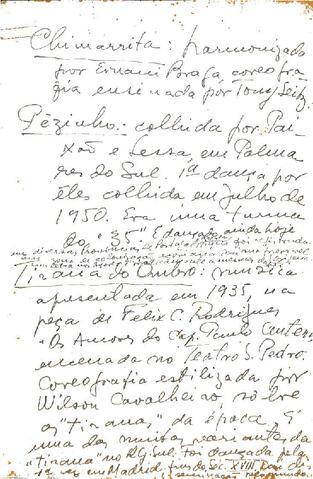 Chimarrita: harmonizada
por Ernani Braga, coreogra
fia ensinada por Tony Seitz
Pèzinho: colhida por Pai
xão e Lessa, em Palma
res do Sul. 1ª dança por
êles colhida em julho de
1950. Era uma turma
do "35" É dançada ainda hoje
em diversas províncias de Portugal
Tirana do Ombro: música
apresentada em 1935, na
peça de Felix C. Rodrigues
"Os Amores do Cap. Paulo Centeno
encenada no Teatro S. Pedro.
Coreografia estilizada por
Wilson Cavalheiro, sôbre
as "tiranas" da época. É
uma das muitas variantes da
"tirana" no R.G. Sul. Foi dançada pela
1ª vez em Madrid, fins do Séc. XVIII.